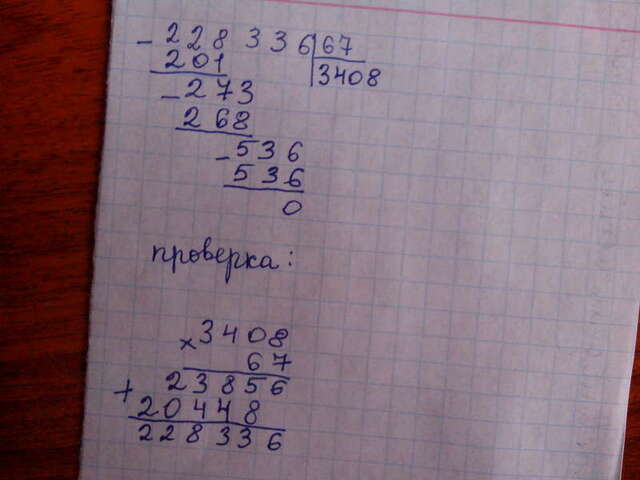 - 228 336 | 67
201 | 3408
- 273
268
- 536
536
0
проверка:
× 3408
67
+ 23856
20448
228336